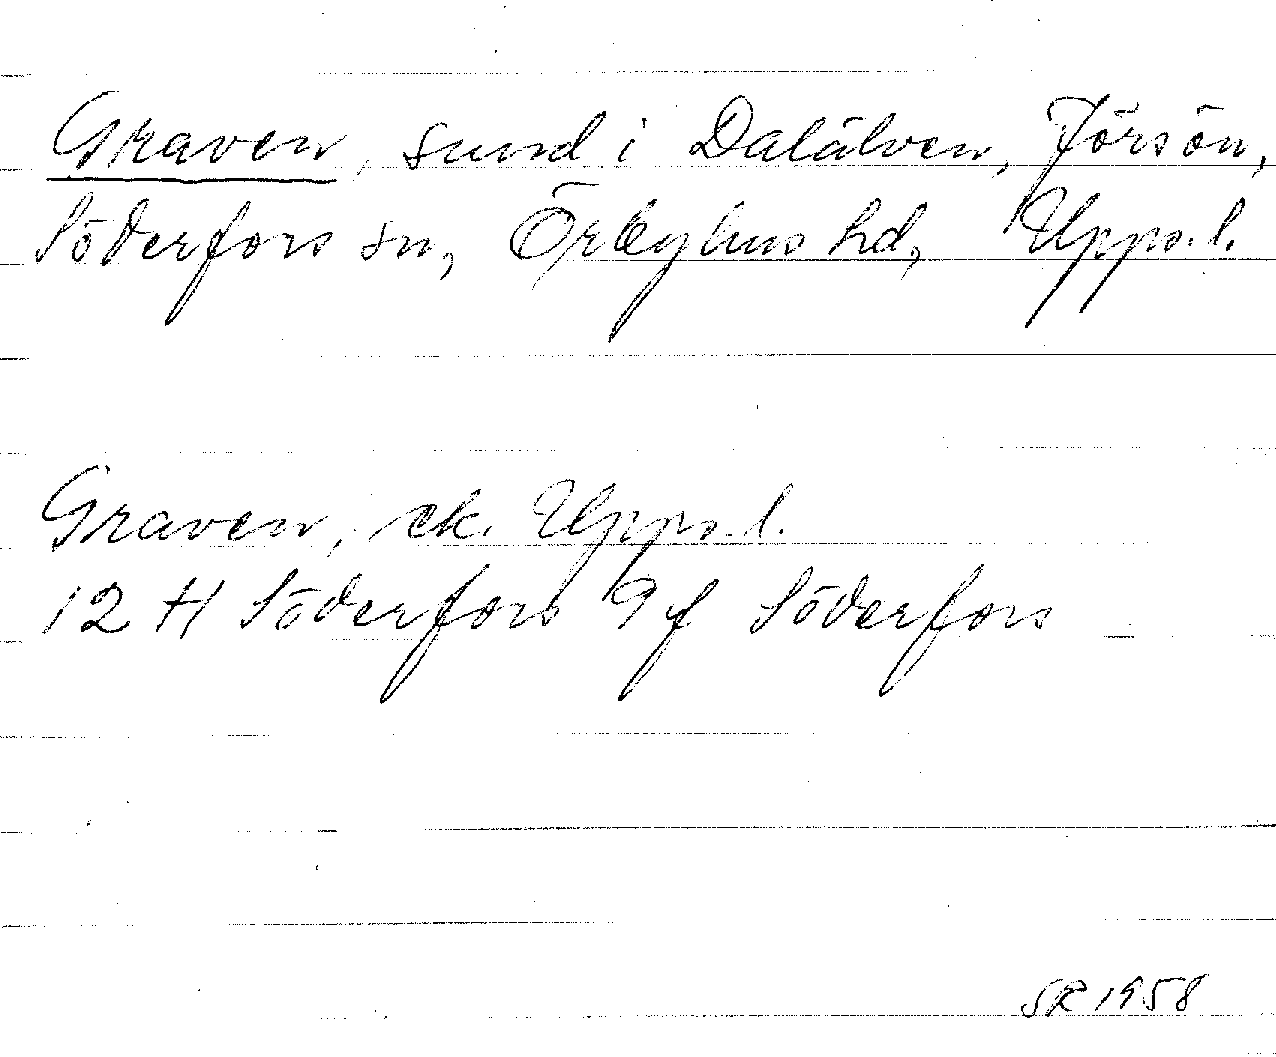 Graven, sund i Dalälven, Jörsön,
Söderfors sn, Örbyhus hd, Upps. l.
Graven, ek. Upps. l.
12 H Söderfors 9f Söderfors
SR 1958